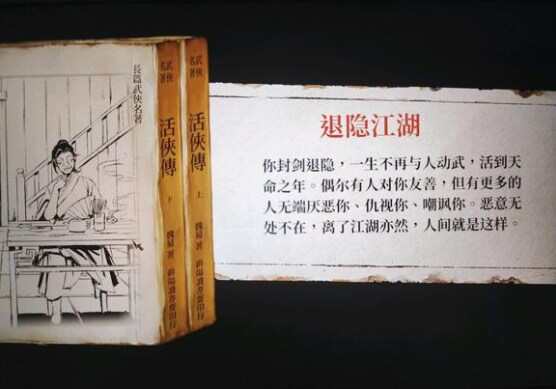 長篇武俠名著
武俠
名著
活俠傳
下
武俠
名著
活俠傳
上
退隐江湖
你封剑退隐，一生不再与人动武，活到天
命之年。偶尔有人对你友善，但有更多的
人无端厌恶你、仇视你、嘲讽你。恶意无
处不在，离了江湖亦然，人间就是这样。